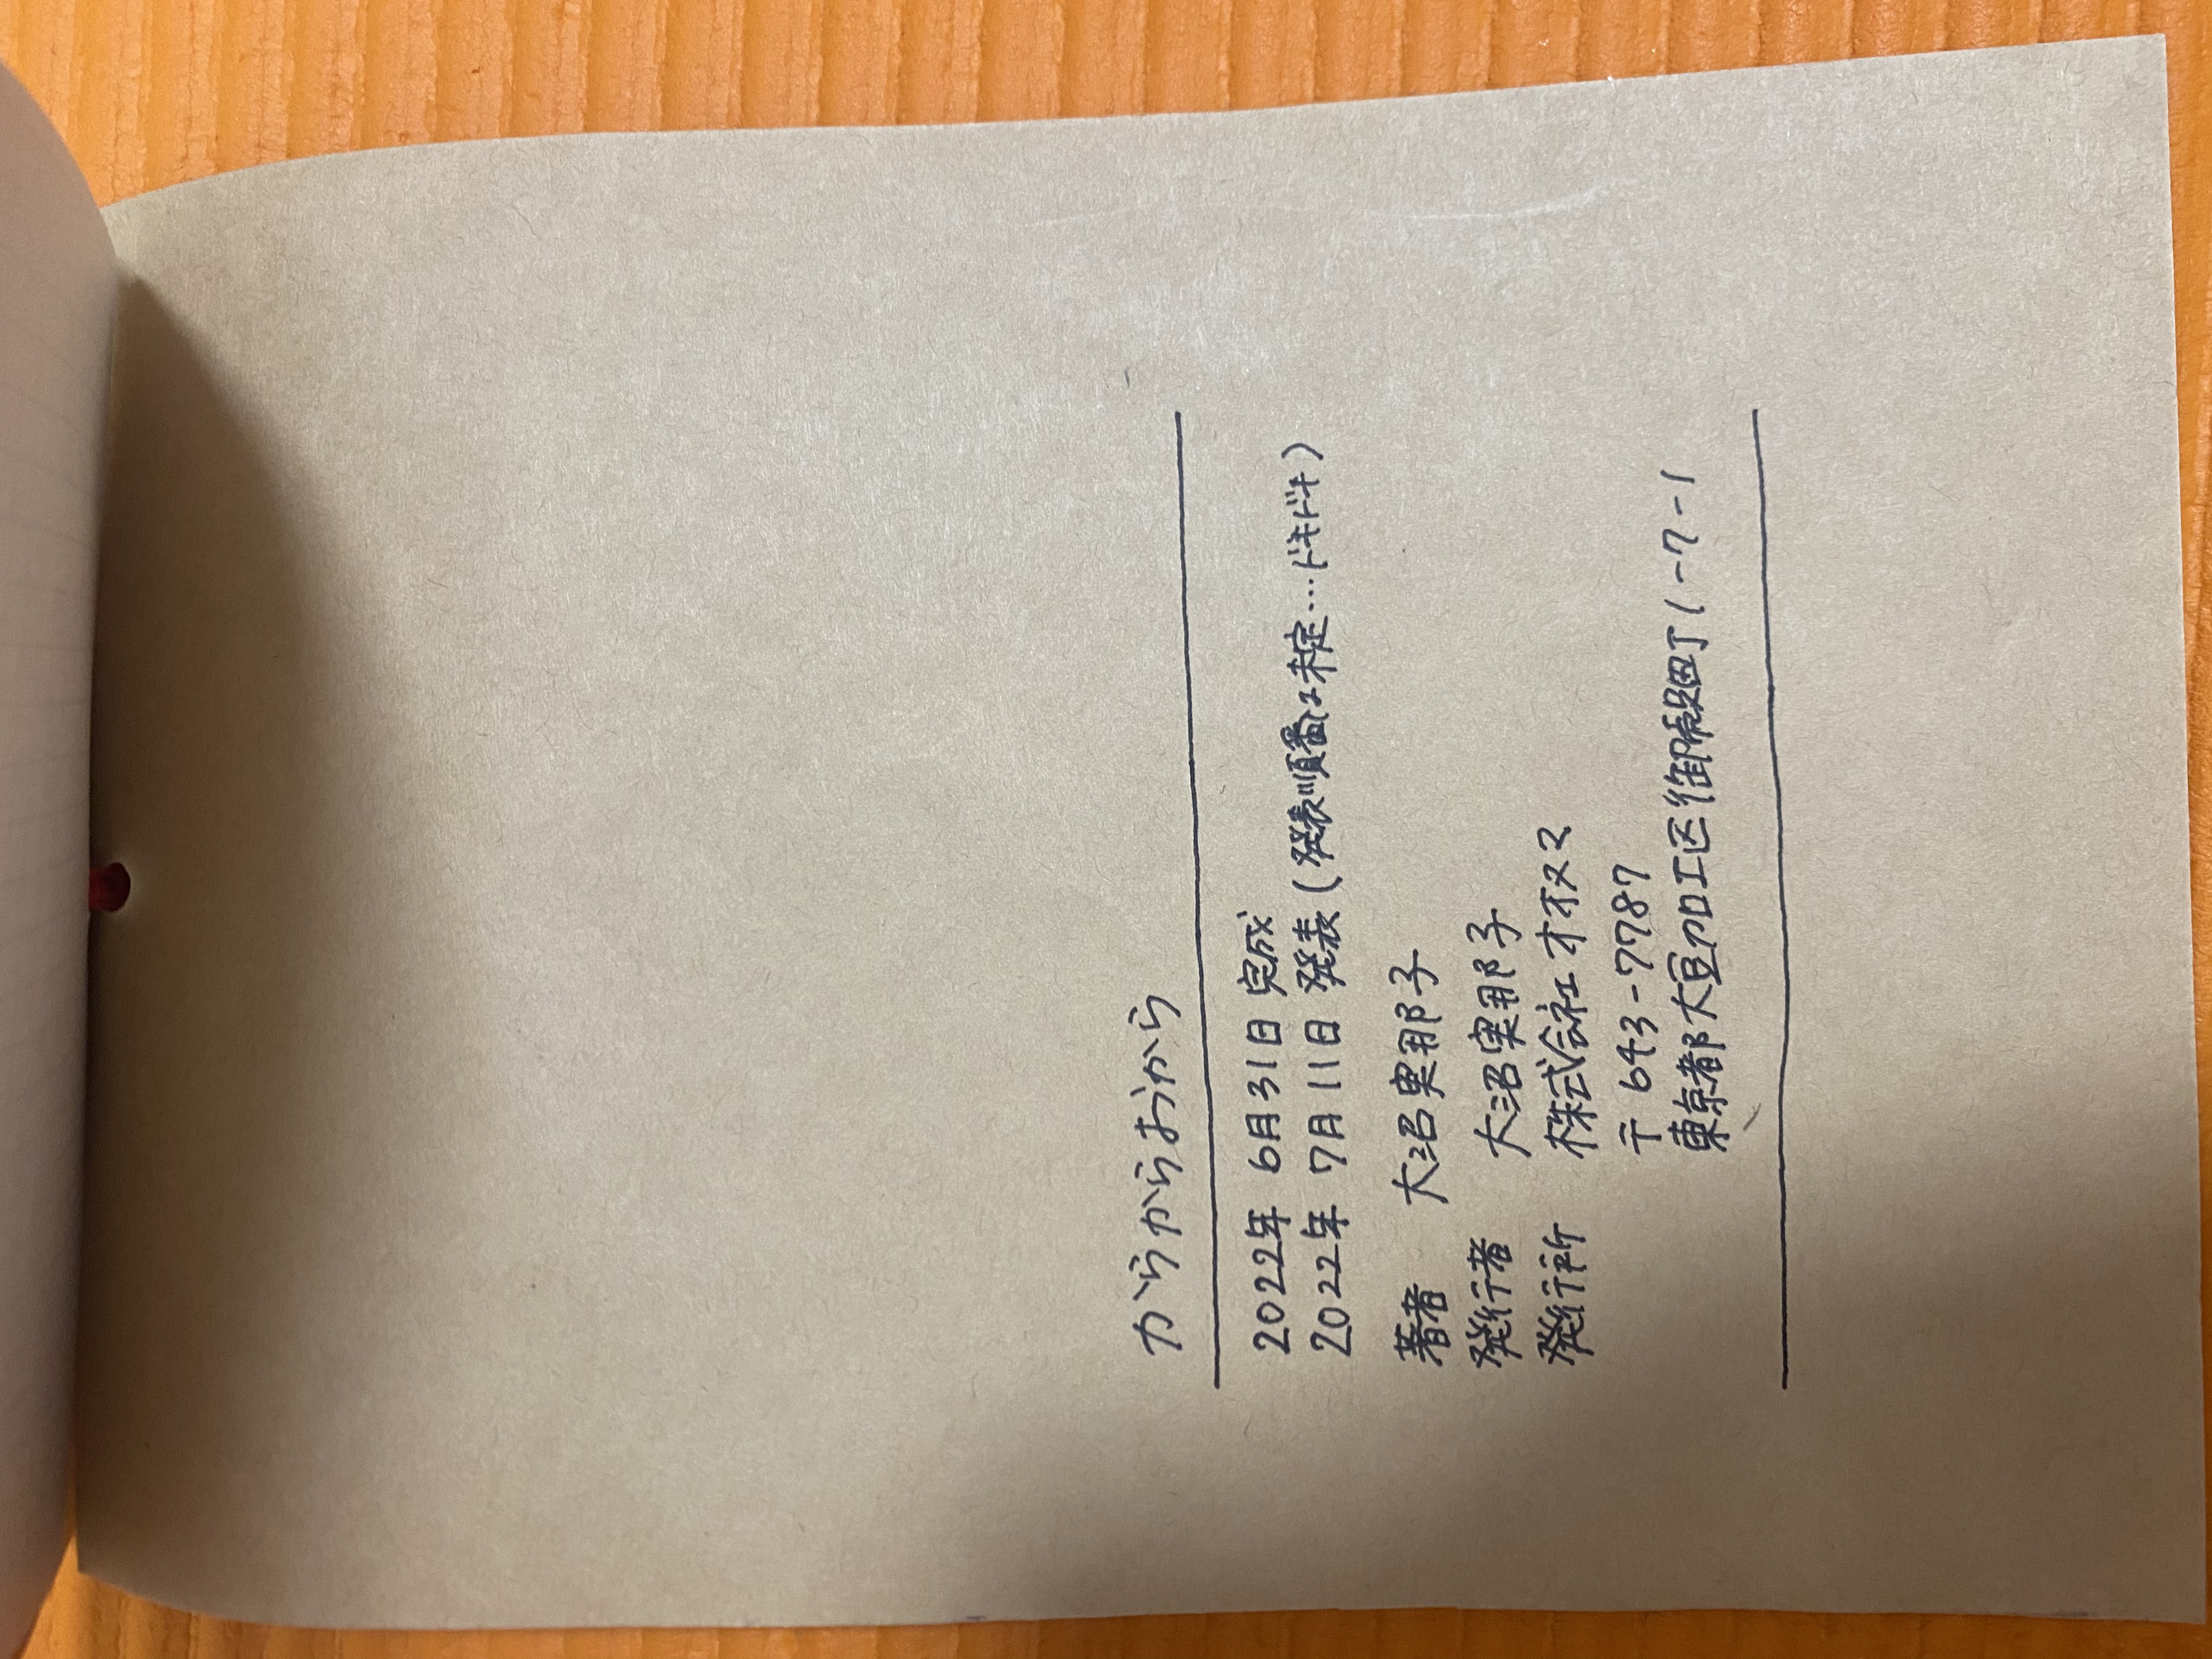 からからおから
2022年 6月31日 完成
2022年 7月11日 発表(発表順番は未定…ドキドキ)
著者 大沼実那子
発行者 大沼実那子
発行所 株式会社オオヌマ
〒643-7787
東京都大豆加工区御殻町1-7-1